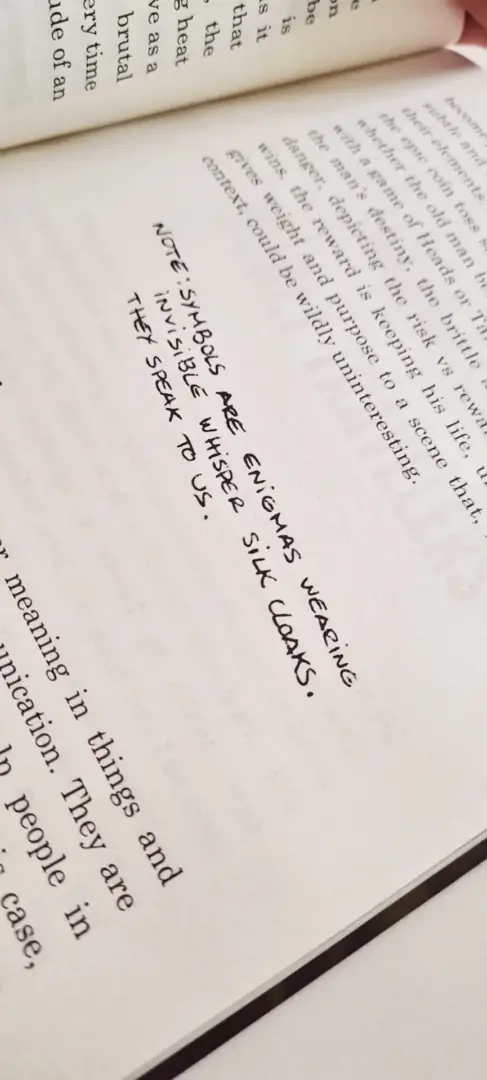 is
be
s it
that
, the
g heat
ve as a
brutal
ery time
ude of an
become
subtle and
their elements.
the epic coin toss s
whether the old man b
with a game of Heads or Ta
the man's destiny, the brittle
danger, depicting the risk vs rewar
wins, the reward is keeping his life, u
gives weight and purpose to a scene that,
context, could be wildly uninteresting.
NOTE: SYMBOLS ARE ENIGMAS WEARING
INVISIBLE WHISPER SILK CLOAKS.
THEY SPEAK TO US.
r meaning in things and
unication. They are
lp people in
s case,